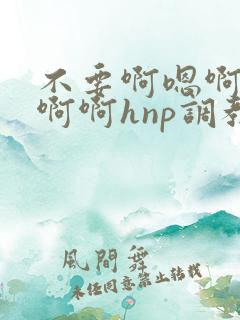 不要啊嗯啊
啊啊hnp調教
風間舞
未经同意禁止转载